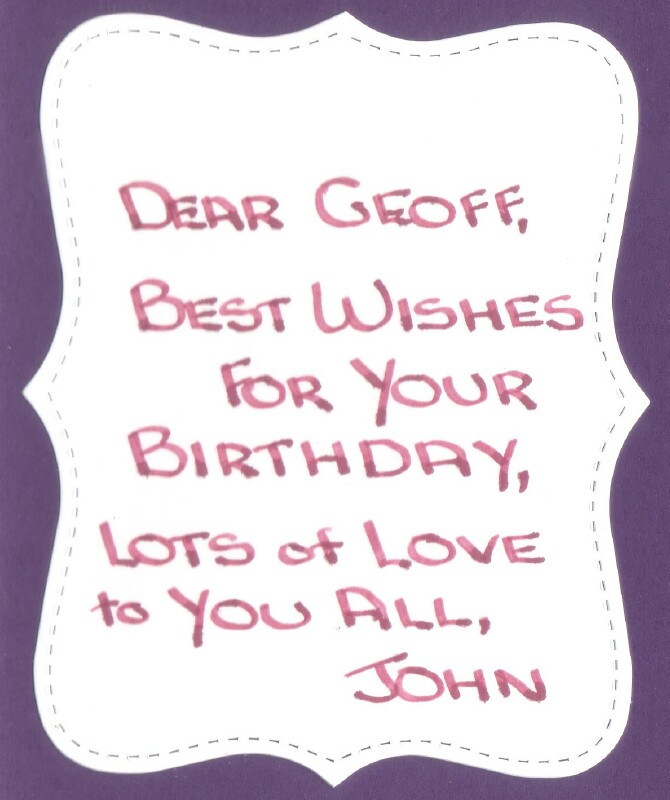 DEAR GEOFF,
BEST WISHES
FOR YOUR
BIRTHDAY,
LOTS of LOVE
to YOU ALL,
JOHN